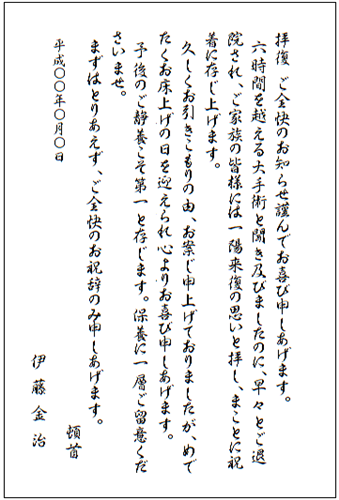 拝復　ご全快のお知らせ謹んでお喜び申しあげます。
六時間を越える大手術と聞き及びましたのに、早々とご退
院され、ご家族の皆様には一陽来復の思いと拝し、まことに祝
着に存じ上げます。
久しくお引きこもりの由、お案じ申上げておりましたが、めで
たくお床上げの日を迎えられ心よりお喜び申しあげます。
予後のご静養こそ第一と存じます。保養に一層ご留意くだ
さいませ。
まずはとりあえず、ご全快のお祝辞のみ申しあげます。
頓首
平成〇〇年〇月〇日
伊藤金治